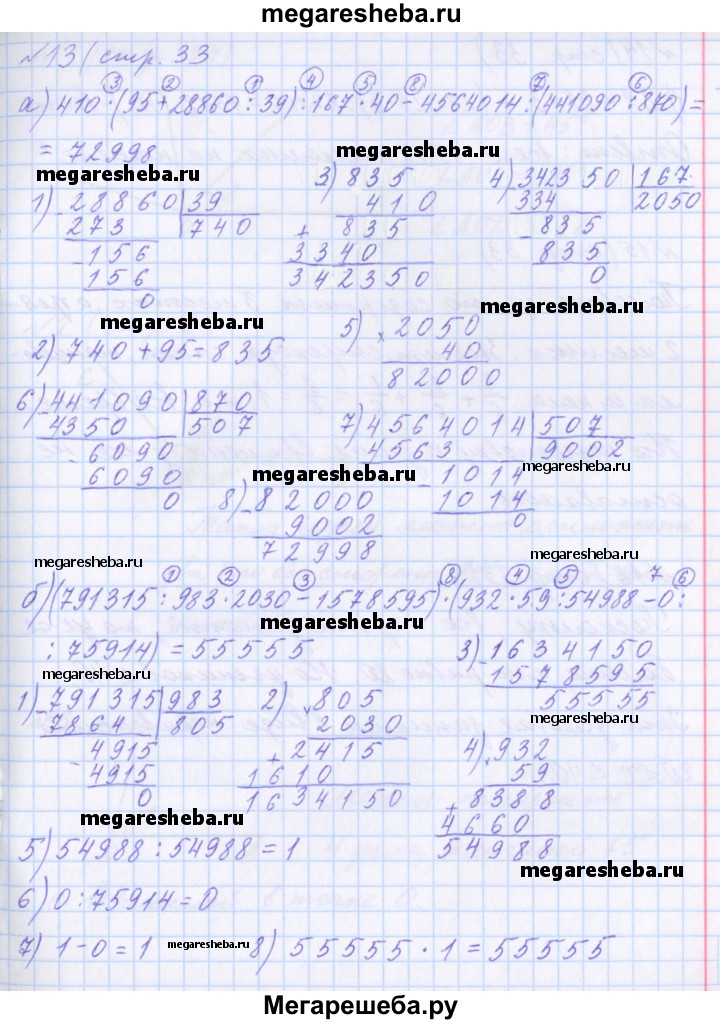 megaresheba.ru
№13 (стр. 33
③ ② ① ④ ⑤ ⑧ ⑦ ⑥
а) 410·(95+28860:39):167·40-4564014:(441090:870)=
= 72998
megaresheba.ru
megaresheba.ru
1) 28860 | 39
273 | 740
-156
156
0
3) 835
410
+ 835
3340
342350
4) 342350 | 167
334 | 2050
- 835
835
0
megaresheba.ru
megaresheba.ru
2) 740+95=835
5) × 2050
40
82000
6) 441090 | 870
4350 | 507
- 6090
6090
0
7) 4564014 | 507
4563 | 9002
- 1014
1014
0
megaresheba.ru
megaresheba.ru
8) - 82000
9002
72998
megaresheba.ru
megaresheba.ru
① ② ③ ⑧ ④ ⑤ 7 ⑥
б) (791315:983·2030-1578595)·(932·59:54988-0:
megaresheba.ru
:75914)=55555
megaresheba.ru
3) -1634150
1578595
55555
megaresheba.ru
1) -791315 | 983
7864 | 805
- 4915
4915
0
2) × 805
2030
+ 2415
1610
1634150
4) × 932
59
+ 8388
4660
54988
megaresheba.ru
5) 54988:54988=1
megaresheba.ru
6) 0:75914=0
7) 1-0=1
megaresheba.ru
8) 55555·1=55555
Мегарешеба.ру